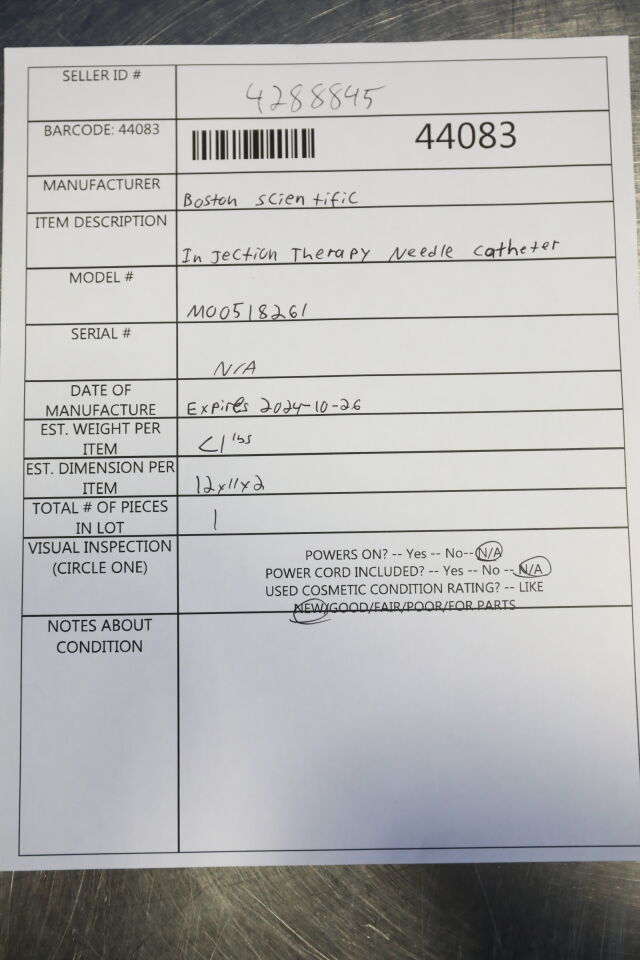 SELLER ID #
4288845
BARCODE: 44083
44083
MANUFACTURER
Boston Scientific
ITEM DESCRIPTION
Injection Therapy Needle Catheter
MODEL #
M00518261
SERIAL #
N/A
DATE OF
MANUFACTURE
Expires 2024-10-26
EST. WEIGHT PER
ITEM
<1 lbs
EST. DIMENSION PER
ITEM
12x11x2
TOTAL # OF PIECES
IN LOT
1
VISUAL INSPECTION
(CIRCLE ONE)
POWERS ON? -- Yes -- No--N/A
POWER CORD INCLUDED? -- Yes -- No --N/A
USED COSMETIC CONDITION RATING? -- LIKE
NEW/GOOD/FAIR/POOR/FOR PARTS
NOTES ABOUT
CONDITION